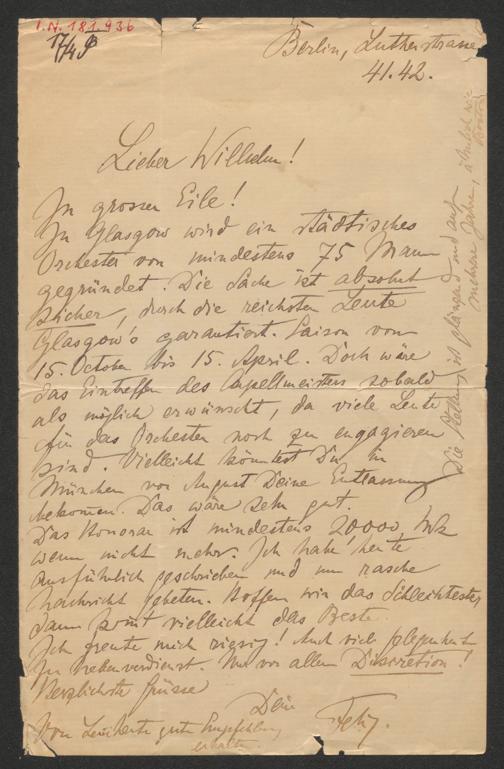 I.N. 181.936
17/48
Berlin, Lutherstrasse
41.42.
Lieber Wilhelm!
In grosser Eile!
In Glasgow wird ein städtisches
Orchester von mindestens 75 Mann
gegründet. Die Sache ist absolut
sicher, durch die reichsten Leute
Glasgow's garantiert. Saison vom
15. October bis 15. April. Doch wäre
das Eintreffen des Capellmeisters sobald
als möglich erwünscht, da viele Leute
für das Orchester noch zu engagieren
sind. Vielleicht könntest Du in
München vor August Deine Entlassung
bekommen. Das wäre sehr gut.
Das Honorar ist mindestens 20,000 Mk
wenn nicht mehr. Ich habe heute
ausführlich geschrieben und um rasche
Nachricht gebeten. Hoffen wir das Schlechteste,
dann kommt vielleicht das Beste.
Ich freute mich riesig! Auch viel Gelegenheit
zu Nebenverdienst. Nur vor allem Discretion!
Herzlichste Grüsse
Dein
Felix.
Von gute Empfehlung
erhalten.
Die Stellung ist glänzend und auf
mehrere Jahre,